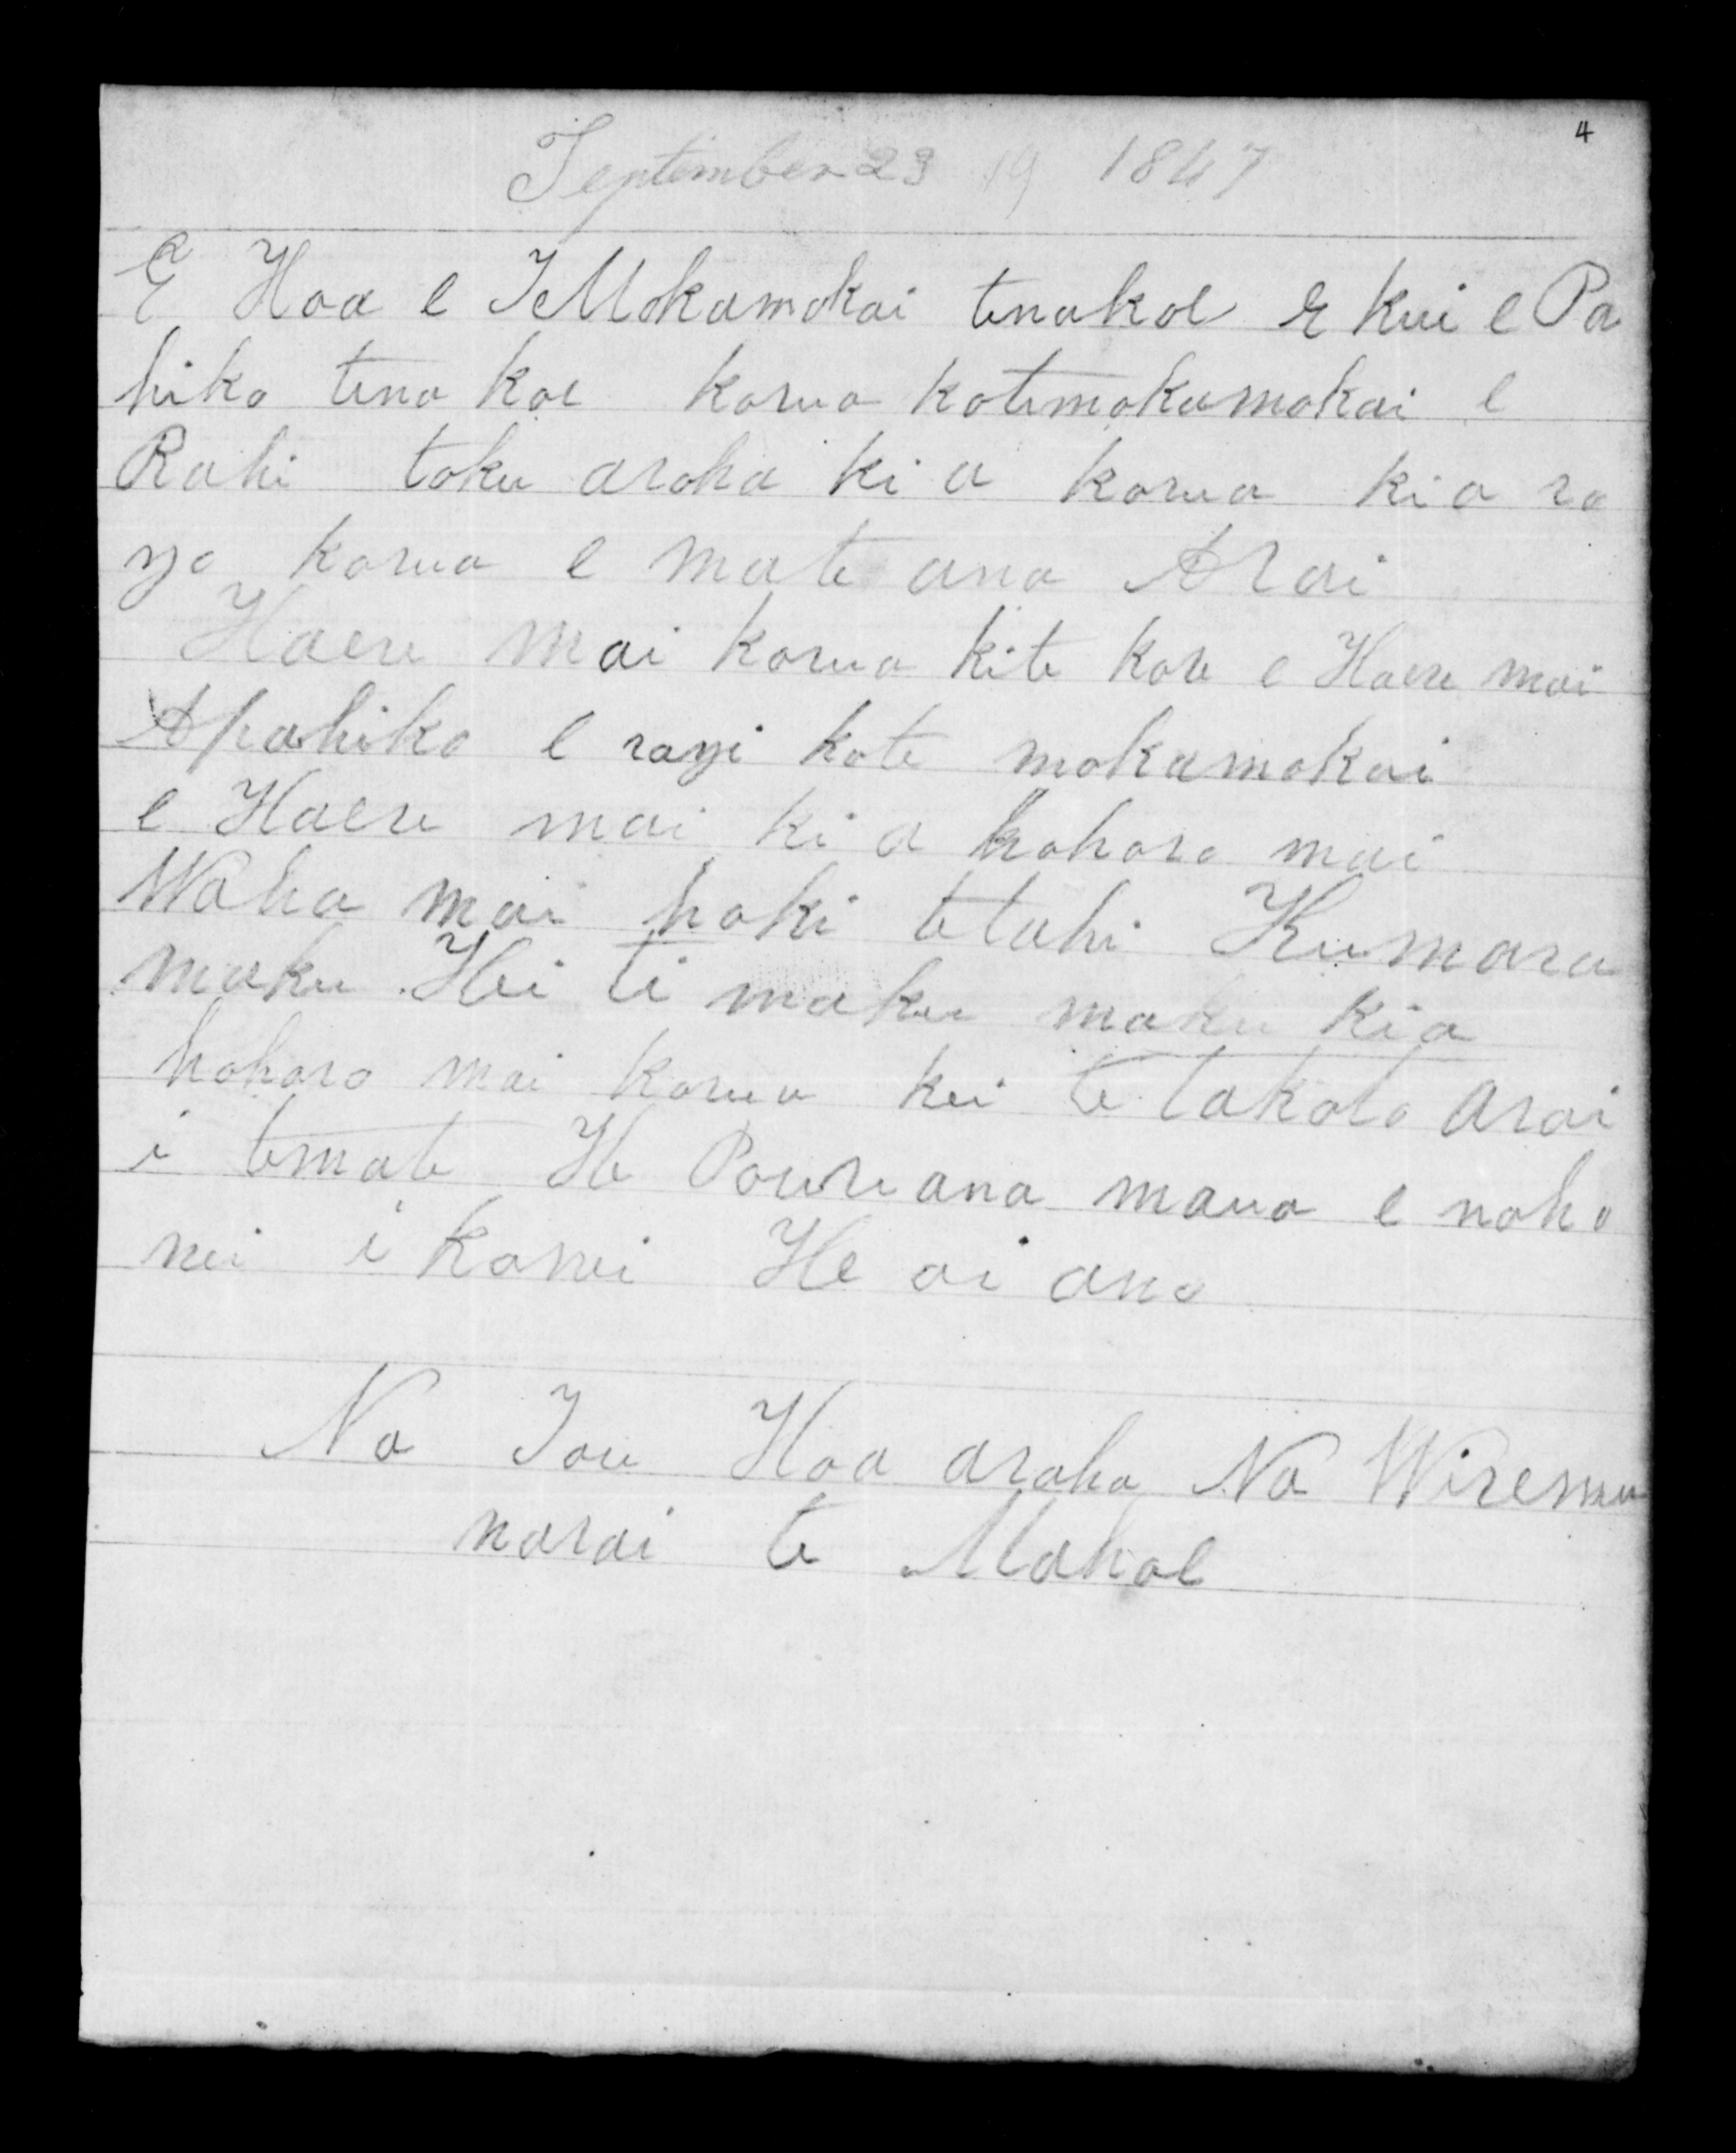 4
September 23 19 1847
E Hoa e TeMokamokai tenakoe E kui e Pa
hiko tena koe korua kotemokamokai e
Rahi toku aroha ki a korua ki a ro
ngo korua e mate ana Arai
Haere mai korua kite kore e Haere mai
Apahiko e rangi kote mokamokai
e Haere mai ki a hohoro mai
Waha mai hoki tetahi Kumara
maku Hei ti maku maku kia
hohoro mai korua kei te takoto arai
i temate He Pouri ana maua e noho
nei i konei He oi ano
Na Tou Hoa aroha Na Wiremu
narai te Mahoe